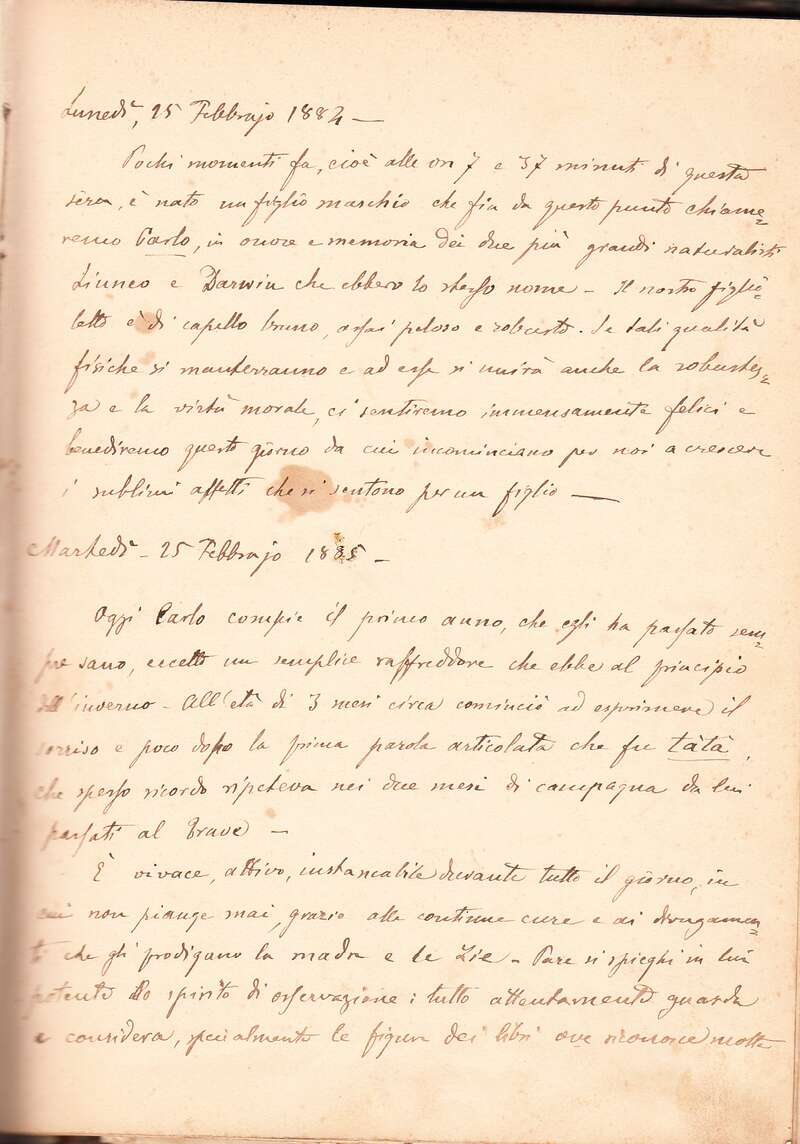 Lunedì, 25 Febbrajo 1884 —
Pochi momenti fa, cioè alle ore 7 e 37 minuti di questa
sera, è nato un figlio maschio che fin da questo punto chiame=
remo Carlo, in onore e memoria dei due più grandi naturalisti
Linneo e Darwin che ebbero lo stesso nome – Il nostro figlio=
letto è di capello bruno, assai peloso e robusto. Se tali qualità
fisiche si manterranno e ad esse si unirà anche la robustez=
za e la virtù morale, ci sentiremo immensamente felici e
benediremo questo giorno da cui incominciano per noi a crescere
i sublimi affetti che si sentono per un figlio —
Martedì – 25 Febbrajo 1885 –
Oggi Carlo compie il primo anno, che egli ha passato sem=
pre sano, eccetto un semplice raffreddore che ebbe al principio
dell'inverno – All'età di 3 mesi circa cominciò ad esprimere il
sorriso e poco dopo la prima parola articolata che fu tàtà,
che spesso ricordo ripeteva nei due mesi di campagna da lui
passati al Trave –
È vivace, attivo, instancabile durante tutto il giorno, in
cui non piange mai, grazie alle continue cure e ai divagamen=
ti che gli prodigano la madre e le zie – Pare si spieghi in lui
potente lo spirito di osservazione: tutto attentamente guarda
e considera, specialmente le figure dei libri ove riconosce molte